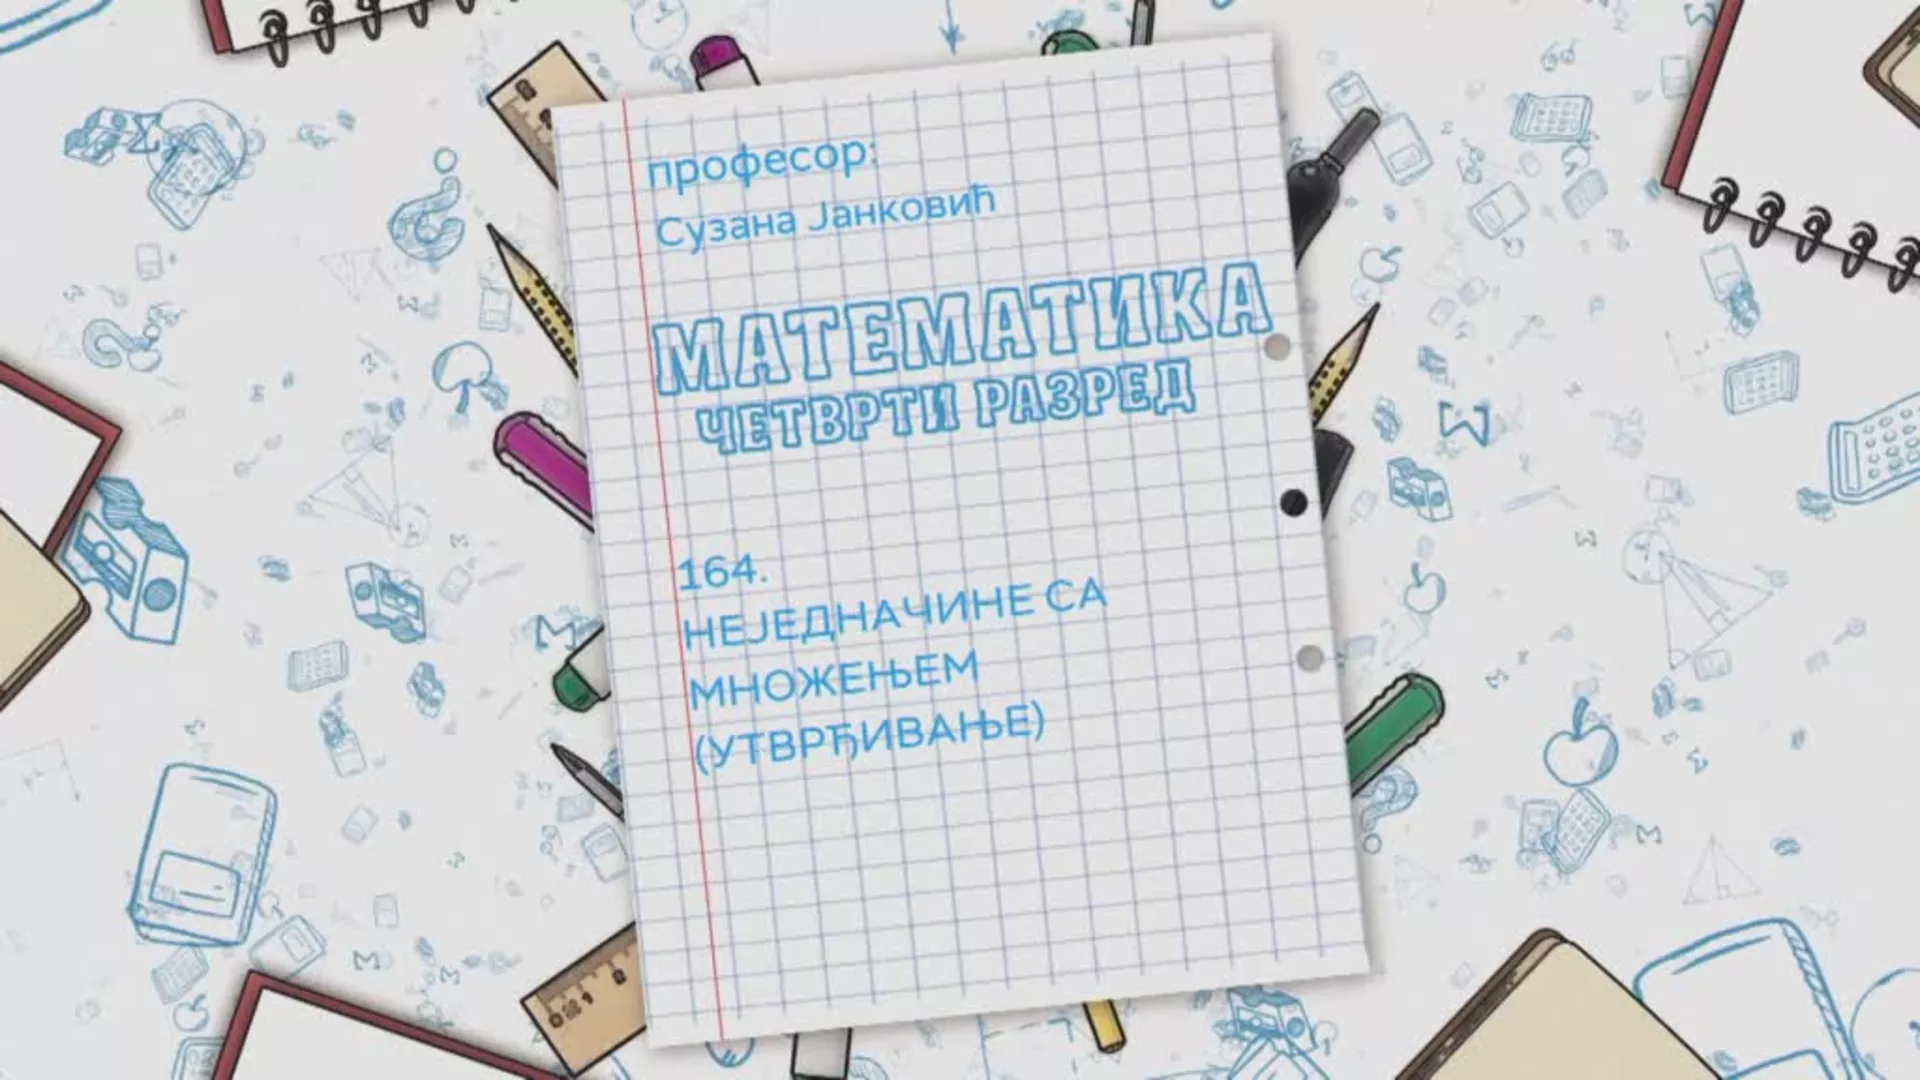 професор:
Сузана Јанковић
МАТЕМАТИКА
ЧЕТВРТИ РАЗРЕД
164.
НЕЈЕДНАЧИНЕ СА
МНОЖЕЊЕМ
(УТВРЂИВАЊЕ)